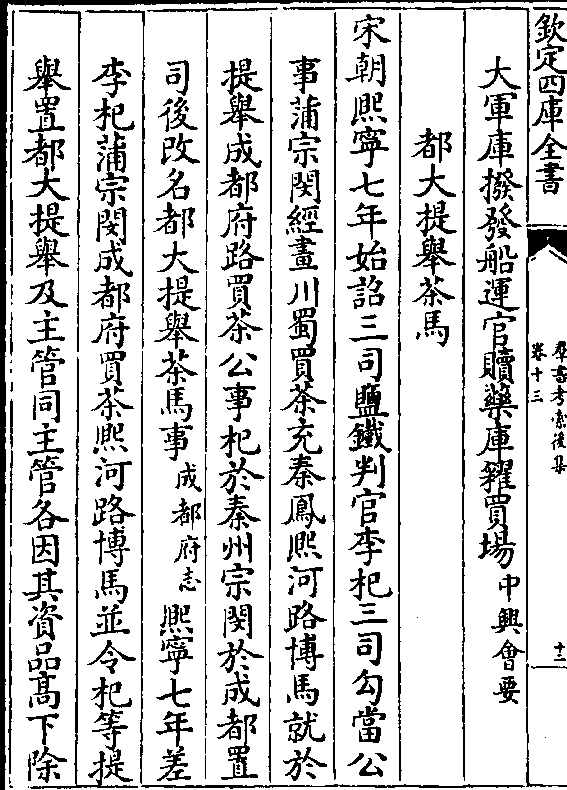 欽定四庫全書
羣書考索後集
卷十三
十二
大軍庫撥發船運官贖藥庫糴買場中興會要
都大提舉茶馬
宋朝熙寧七年始詔三司鹽鐵判官李杞三司勾當公
事蒲宗閔經畫川蜀買茶充秦鳳熙河路博馬就於
提舉成都府路買茶公事杞於秦州宗閔於成都置
司後改名都大提舉茶馬事成都府志熙寧七年差
李杞蒲宗閔成都府買茶熙河路博馬並令杞等提
舉置都大提舉及主管同主管各因其資品高下除